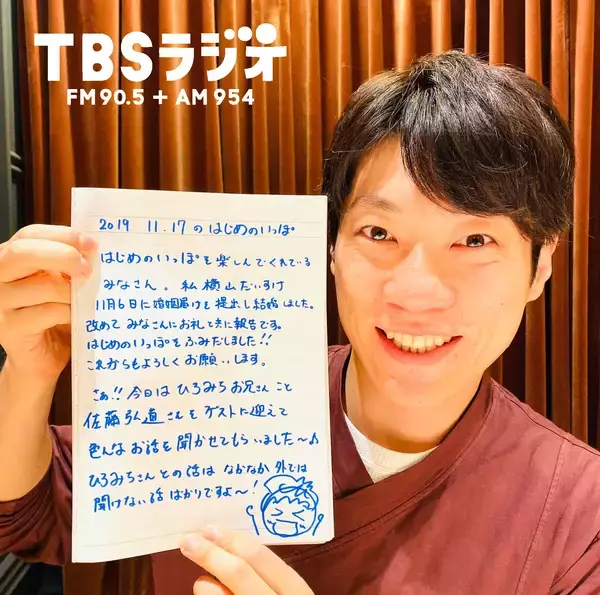 TBSラジオ
FM 90.5 + AM 954
2019 11.17 のはじめのいっぽ
はじめのいっぽを楽しんでくれている
みなさん。私横山だいすけ
11月6日に婚姻届けを提出し結婚しました。
改めてみなさんにお礼と共に報告です。
はじめのいっぽをふみだしました!!
これからもよろしくお願いします。
さぁ!!今日はひろみちお兄さんこと
佐藤弘道さんをゲストに迎えて
色んなお話を聞かせてもらいました〜♪
ひろみちさんとの話はなかなか外では
聞けない話ばかりですよ〜!